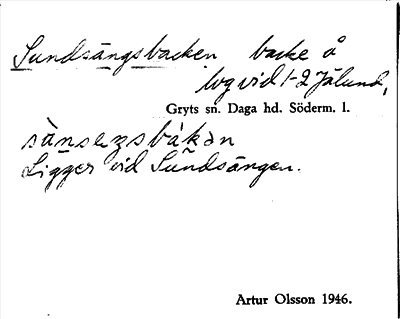 Sundsängsbacken backe å
lvg vid 1-2 Jälund,
Gryts sn. Daga hd. Söderm. l.
Ligger vid Sundsängen.
Artur Olsson 1946.